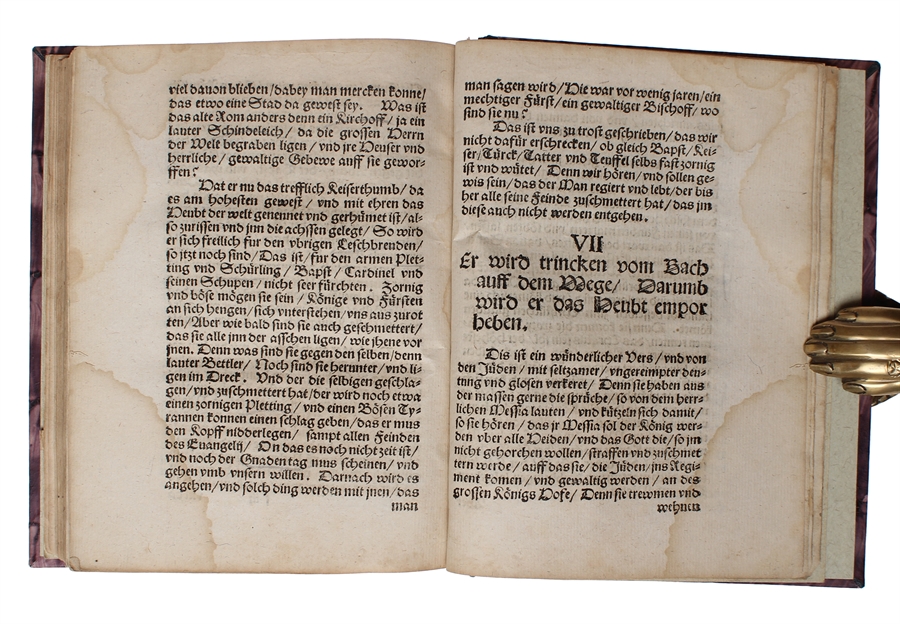 viel dauon blieben/dabey man mercken konne/
das etwo eine Stad da gewest sey. Was ist
das alte Rom anders denn ein Kirchoff/ ja ein
lauter Schindeleich/ da die grossen Herrn
der Welt begraben ligen/ vnd jre Heuser vnd
herrliche/ gewaltige Gebewe auff sie gewor-
ffen?
Hat er nu das trefflich Keiserthumb/ da
es am hohesten gewest/ vnd mit ehren das
Heubt der welt genennet vnd gerhümet ist/ al-
so zurissen vnd jnn die asschen gelegt/ So wird
er sich freilich fur den vbrigen Leschbrenden/
so jtzt noch sind/ Das ist/ für den armen Plet-
ting vnd Schürling/ Bapst/ Cardinel vnd
seinen Schupen/ nicht seer fürchten. Zornig
vnd böse mögen sie sein/ Könige vnd Fürsten
an sich hengen/ sich vnterstehen/ vns aus zurot
ten/ Aber wie bald sind sie auch geschmettert/
das sie alle jnn der asschen ligen/ wie jhene vor
jnen. Denn was sind sie gegen den selben/ denn
lauter Bettler/ Noch sind sie herunter/ vnd li-
gen im Dreck. Vnd der die selbigen geschla-
gen/ vnd zuschmettert hat/ der wird noch etwa
einen zornigen Pletting/ vnd einen Bösen Ty-
rannen konnen einen schlag geben/ das er mus
den Kopff nidderlegen/ sampt allen Feinden
des Euangelij/ On das es noch nicht zeit ist/
vnd noch der Gnaden tag mus scheinen/ vnd
gehen vmb vnsern willen. Darnach wird es
angehen/ vnd solch ding werden mit jnen/ das
man
man sagen wird/ Hie war vor wenig jaren/ ein
mechtiger Fürst/ ein gewaltiger Bischoff/ wo
sind sie nu?
Das ist vns zu trost geschrieben/ das wir
nicht dafür erschrecken/ ob gleich Bapst/ Kei-
ser/ Türck/ Tatter vnd Teuffel selbs fast zornig
ist vnd wütet/ Denn wir hören/ vnd sollen ge-
wis sein/ das der Man regiert vnd lebt/ der bis
her alle seine Feinde zuschmettert hat/ das jm
diese auch nicht werden entgehen.
VII
Er wird trincken vom Bach
auff dem Wege/ Darumb
wird er das Heubt empor
heben.
Dis ist ein wünderlicher Vers/ vnd von
den Jüden/ mit seltzamer/ vngereimpter deu-
tung vnd glosen verkeret/ Denn sie haben aus
der massen gerne die sprüche/ so von dem herr-
lichen Messia lauten/ vnd kützeln sich damit/
so sie hören/ das jr Messia sol der König wer-
den vber alle Heiden/ vnd das Gott die/ so jm
nicht gehorchen wollen/ straffen vnd zuschmet
tern werde/ auff das sie/ die Jüden/ jns Regi-
ment komen/ vnd gewaltig werden/ an des
grossen Königs Hofe/ Denn sie trewmen vnd
wehnen